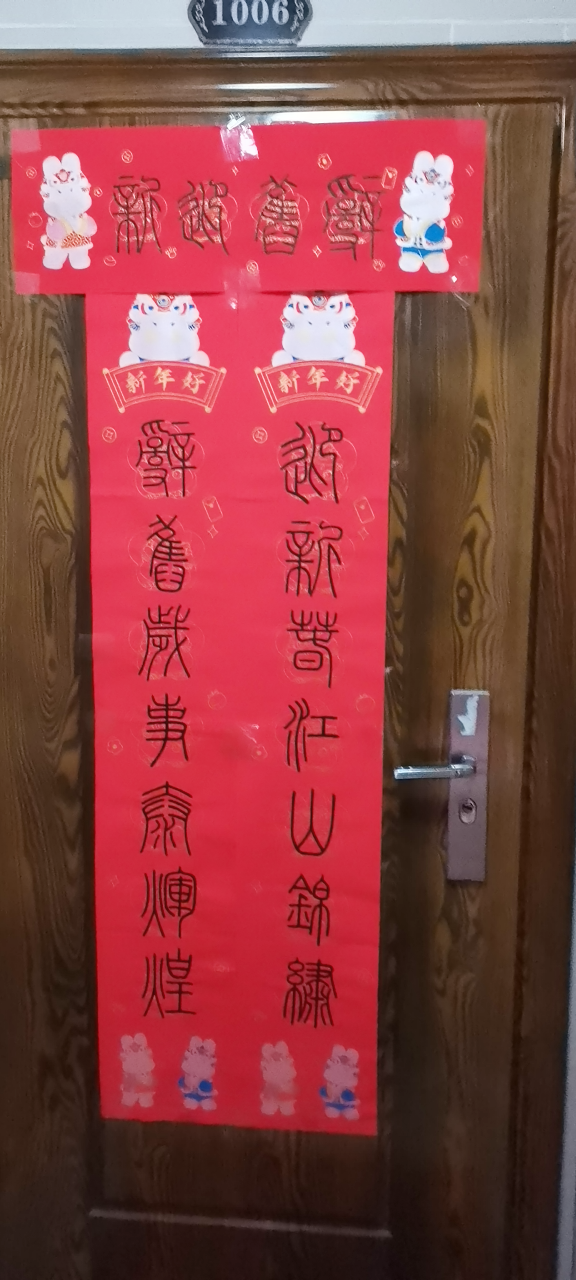 1006
辭舊迎新
新年好
迎新春江山錦繡
新年好
辭舊歲事泰煇煌